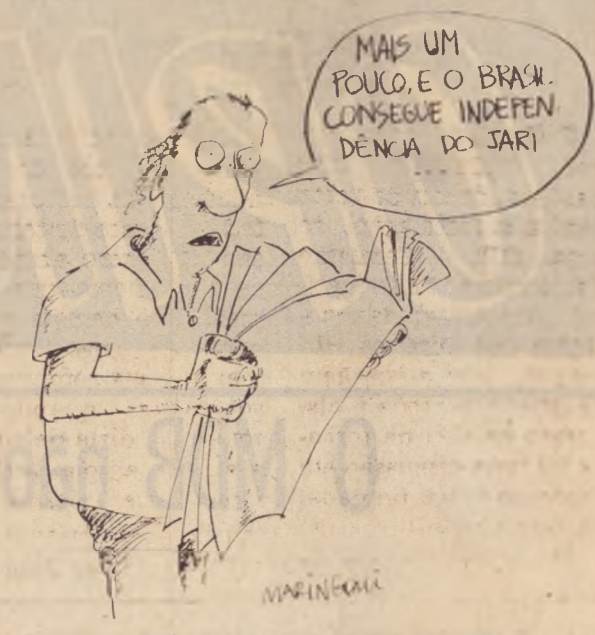 MAIS UM
POUCO, E O BRASIL
CONSEGUE INDEPEN
DÊNCIA DO JARI
O MDB não